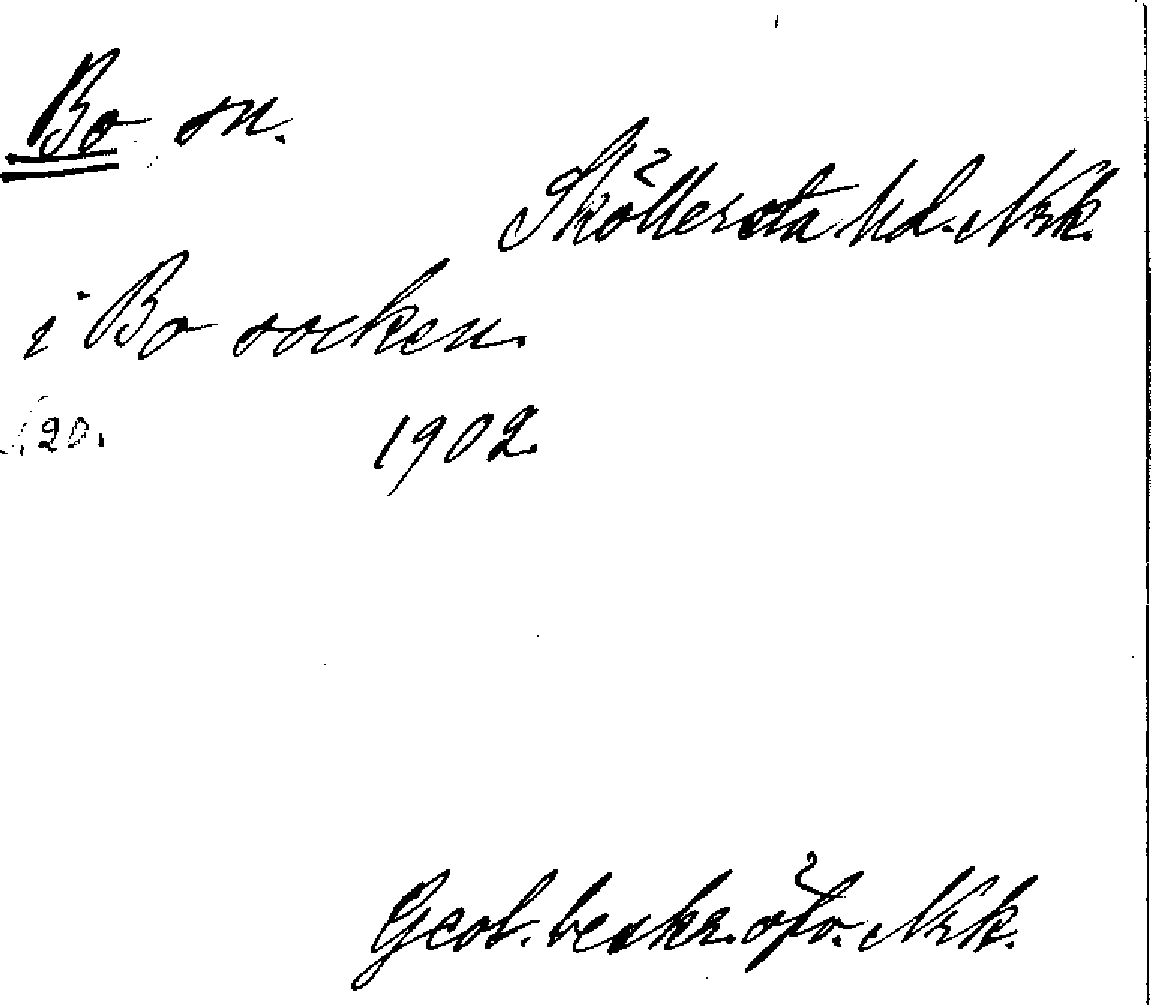 Bo sn.
Sköllersta hd. Nrk.
i Bo socken.
S. 20. 1902
Geol. beskr. öfv. Nrk.